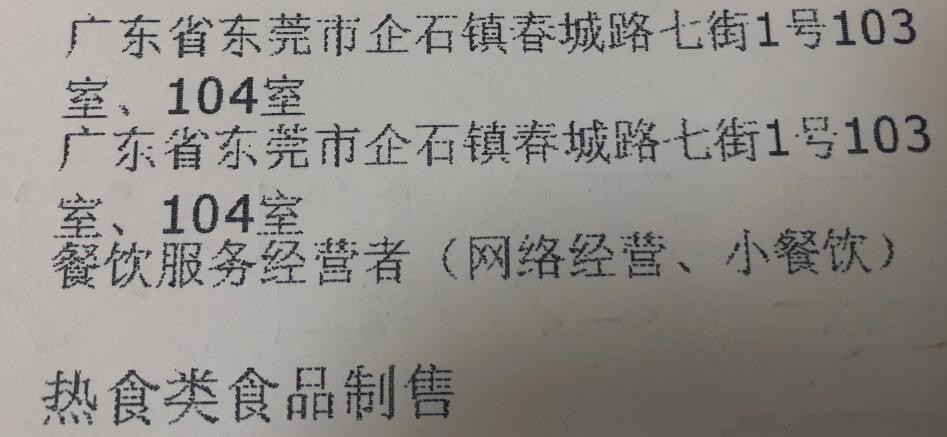 广东省东莞市企石镇春城路七街1号103
室、104室
广东省东莞市企石镇春城路七街1号103
室、104室
餐饮服务经营者（网络经营、小餐饮）
热食类食品制售